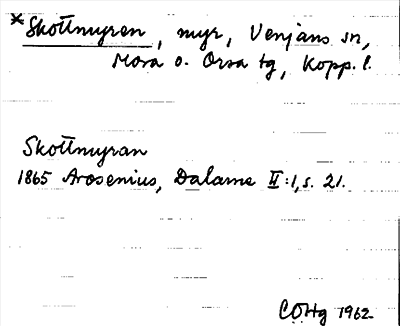 *Skottmyren, myr, Venjans sn,
Mora o. Orsa tg, Kopp. l.
Skottmyran
1865 Arosenius, Dalarne II:1, s. 21.
CÖHg 1962